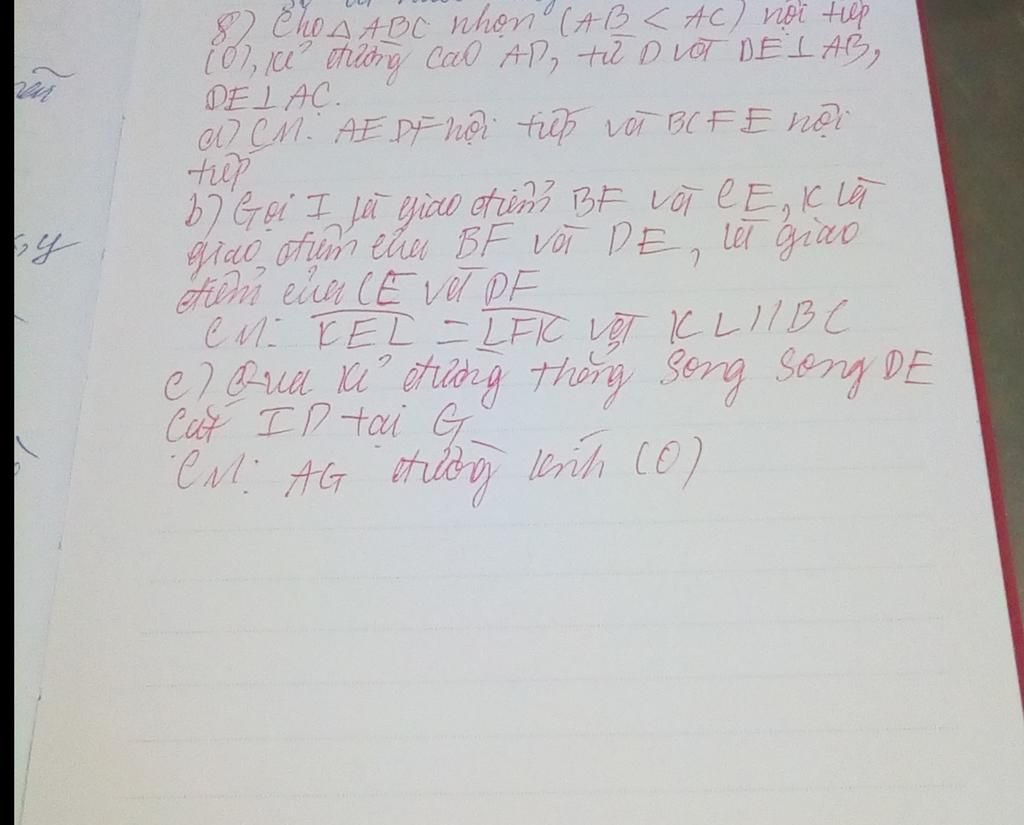 8) Cho △ ABC nhọn (AB < AC) nội tiếp
(O), kẻ đường cao AD, từ D vẽ DE ⊥ AB,
DE ⊥ AC.
a) CM: AEDF nội tiếp và BCFE nội
tiếp
b) Gọi I là giao điểm BF và CE, K là
giao điểm của BF và DE, là giao
điểm của CE và DF
CM: KEL = LFK và KL // BC
c) Qua kẻ đường thẳng song song DE
cắt ID tại G
CM: AG đường kính (O)